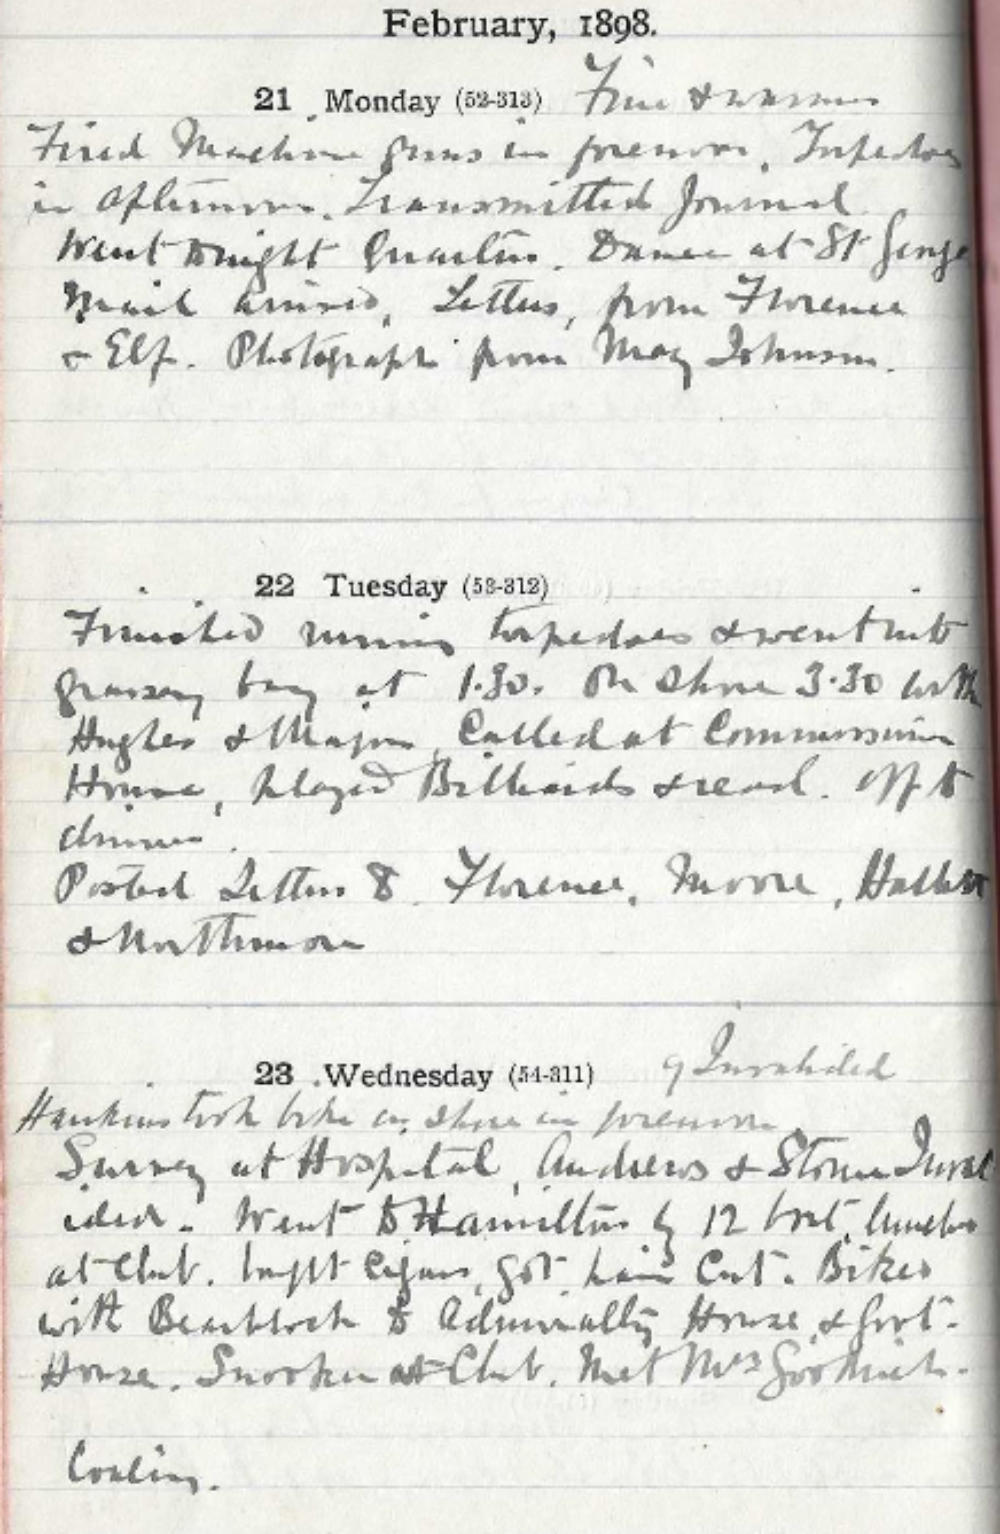 February, 1898.
21 Monday (52-313) Fine & warmer
Fired Machine guns in forenoon, Torpedoes
in afternoon. Transmitted Journal
Went to night Quarters. Dance at St George
Mail arrived, Letters, from Florence
& Elf. Photograph from May Johnson.
22 Tuesday (53-312)
Finished running torpedoes & went into
grassy bay at 1.30. On shore 3.30 with
Hughes & Major, Called at Commissioner
House, played Billiards & read. Off to
dinner.
Posted Letters to Florence, Moore,
& Northmore
23 Wednesday (54-311) 9 Invalided
Hawkins took bike on shore in forenoon
Survey at Hospital, Andrews & Stone Inval
ided. Went to Hamilton by 12 boat, lunched
at Club. bought Cigars, got hair Cut. Biked
with to Admiralty House & Govt.
House. Snooker at Club. Met Mrs
Coaling.